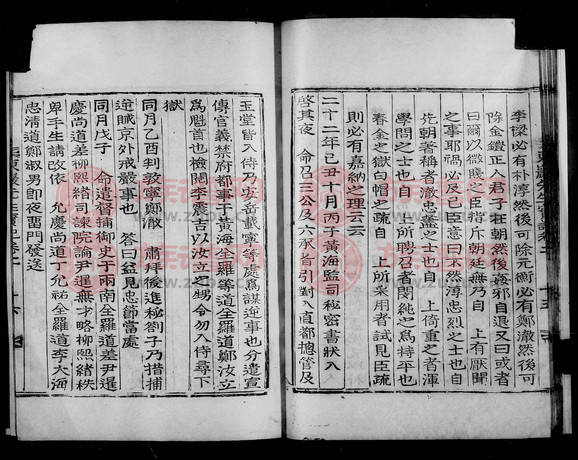 李樑必有朴淳然後可除元衡必有鄭澈然後可
除金鎧正人君子在朝然後姦邪自退又曰或者
曰爾以微賤之臣指斥朝廷無乃自 上有厭聞
之事耶禍必及已臣意曰不然淳忠烈之士也自
先朝著稱者澈忠蠱之士也 上倚重之者渾
學問之士也 上所聘召者閔純之爲持平也
春金之獄白帽之疏自 上所采用者試見臣疏
則必有嘉納之理云云
二十二年己丑十月丙子黃海監司秘密書狀入
啓其夜 命召三公及六承旨引對入直都摠管及
玉堂皆入侍乃安岳載寧等處爲謀逆事也分遣宣
傳官義禁府都事于黃海全羅等道鄭汝立
爲魁首也檢閱李震吉以汝立之甥令勿入侍尋下
獄
同月乙酉判敦寧鄭澈 肅拜後進秘劄子乃措捕
逆賊京外戒嚴事也 答曰益見忠節當處
同月戊子 命遣督捕御史于兩南全羅道差尹暹
慶尚道差柳熙緒司諫院論尹暹無才略柳熙緒秩
卑年生請改依 允慶尚道丁允祐全羅道李大海
忠清道鄭淑男即夜留門發送